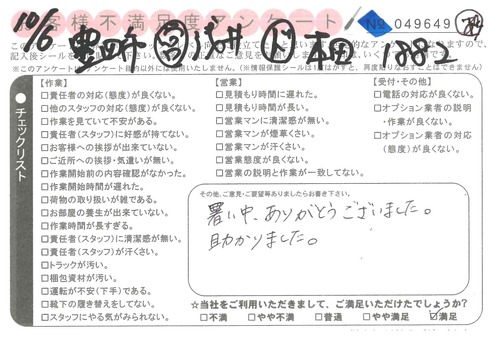 お客様不満足度アンケート
No 049649
10/6
本田 1882
※このアンケートはアンケート目的以外には使いたしません。(※情報保護シールは1度はがすと、再度貼りなおすことはできません)
チェックリスト
【作業】
□責任者の対応(態度)が良くない。
□他のスタッフの対応(態度)が良くない。
□作業を見ていて不安がある。
□責任者(スタッフ)に好感が持てない。
□お客様への挨拶が出来ていない。
□ご近所への挨拶・気遣いが無い。
□作業開始前の内容確認がなかった。
□作業開始時間が遅れた。
□荷物の取り扱いが雑である。
□お部屋の養生が出来ていない。
□作業時間が長すぎる。
□責任者(スタッフ)に清潔感が無い。
□責任者(スタッフ)が汗くさい。
□トラックが汚い。
□梱包資材が汚い。
□運転が不安(下手)である。
□靴下の履き替えをしてない。
□スタッフにやる気がみられない。
【営業】
□見積もり時間に遅れた。
□見積もり時間が長い。
□営業マンに清潔感が無い。
□営業マンが煙草くさい。
□営業マンが汗くさい。
□営業態度が良くない。
□営業の説明と作業が一致してない。
【受付・その他】
□電話の対応が良くない。
□オプション業者の説明
・作業が良くない。
□オプション業者の対応
(態度)が良くない。
その他、ご意見・ご要望等ありましたらお書き下さい。
暑い中、ありがとうございました。
助かりました。
☆当社をご利用いただきまして、ご満足いただけたでしょうか?
□不満 □やや不満 □普通 □やや満足 ☑満足